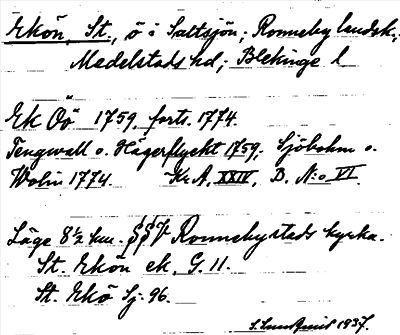 Ekön, St., ö i Saltsjön; Ronneby landsk.;
Medelstads hd; Blekinge l
Ek Öö 1759, forts. 1774.
Tengwall o. Hägerflyckt 1759; Sjöbohm o.
Wolin 1774. K: A. XXIV, B. N:o VI.
Läge 8½ km. SSV Ronneby stads kyrka.
St. Ekön ek. G. 11.
St. Ekö Sj. 96.
1937.